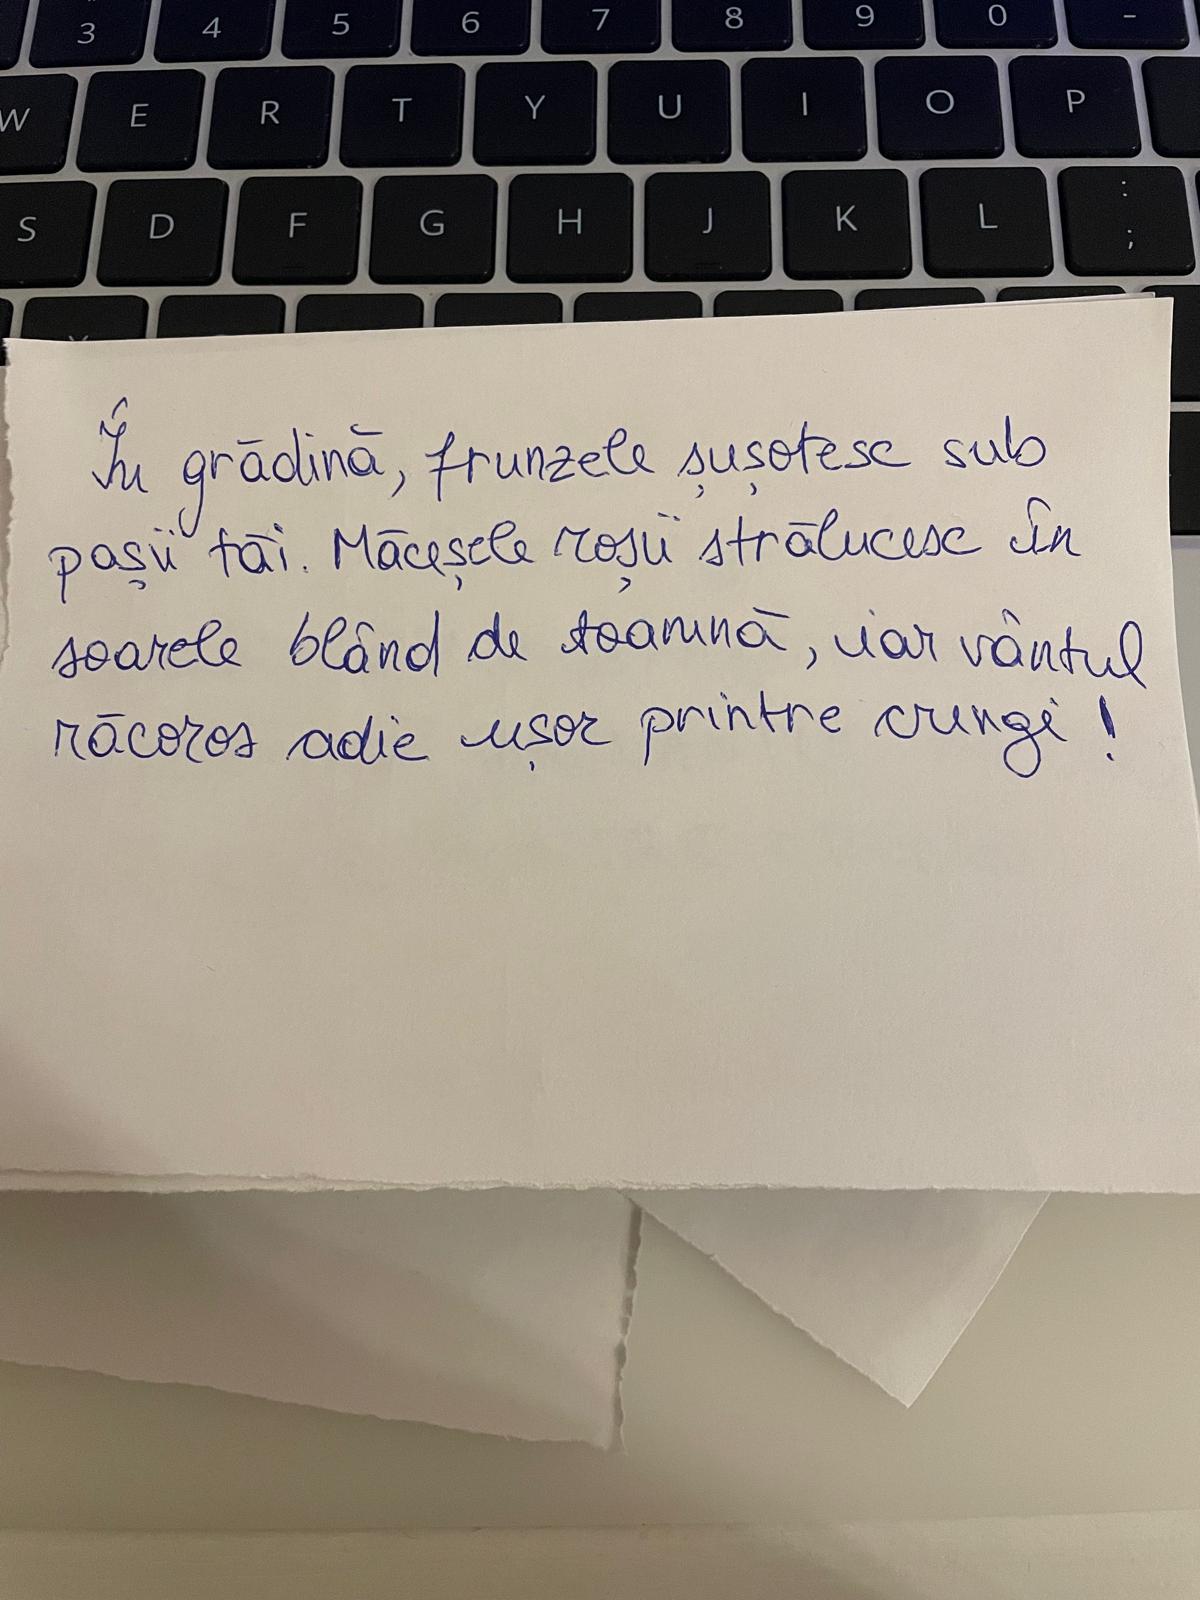 3 4 5 6 7 8 9 0 -
W E R T Y U I O P
S D F G H J K L : ;
În grădină, frunzele șușotesc sub
pașii tăi. Măceșele roșii strălucesc în
soarele blând de toamnă, iar vântul
răcoros adie ușor printre crengi!